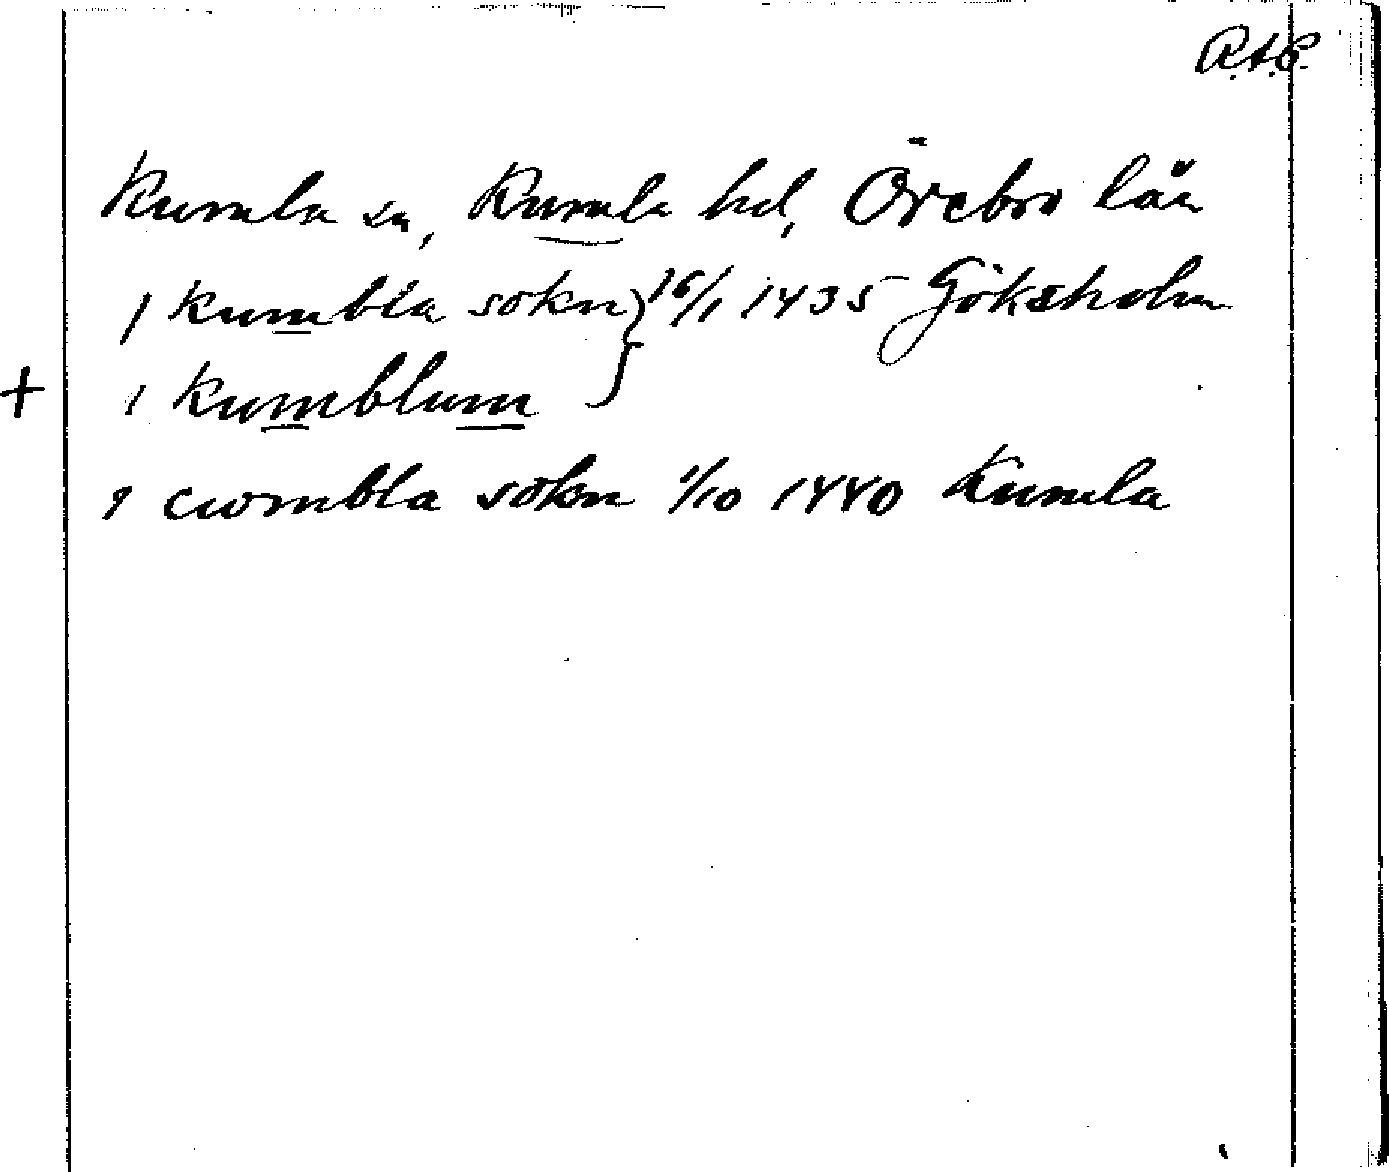 R.A.P.
Kumla sn, Kumla hd, Örebro län
i kumbla sokn } 16/1 1435 Göksholm
+ i kumblum }
i cwmbla sokn 1/10 1440 Kumla